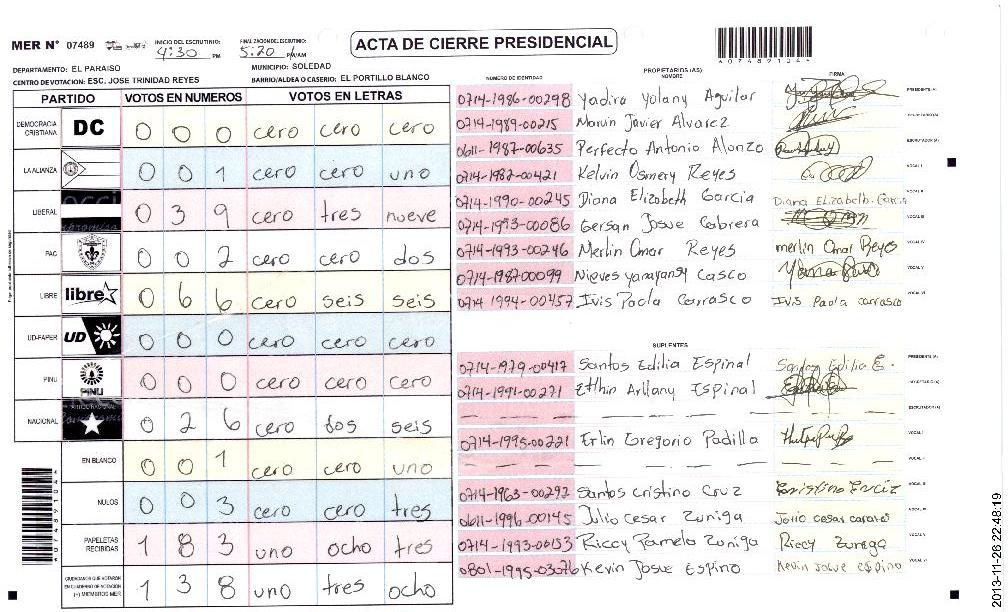 MER N° 07489 INICIO DEL ESCRUTINIO: 4:30 PM FINALIZACION DEL ESCRUTINIO: 5:20 PM/AM
ACTA DE CIERRE PRESIDENCIAL
DEPARTAMENTO: EL PARAISO MUNICIPIO: SOLEDAD
CENTRO DE VOTACION: ESC. JOSE TRINIDAD REYES BARRIO/ALDEA O CASERIO: EL PORTILLO BLANCO
PARTIDO VOTOS EN NUMEROS VOTOS EN LETRAS
DEMOCRACIA CRISTIANA DC 0 0 0 cero cero cero
LA ALIANZA 0 0 1 cero cero uno
LIBERAL 0 3 9 cero tres nueve
PAC 0 0 2 cero cero dos
LIBRE libre 0 6 6 cero seis seis
UD-FAPER UD 0 0 0 cero cero cero
PINU PINU 0 0 0 cero cero cero
NACIONAL 0 2 6 cero dos seis
EN BLANCO 0 0 1 cero cero uno
NULOS 0 0 3 cero cero tres
PAPELETAS RECIBIDAS 1 8 3 uno ocho tres
CIUDADANOS QUE VOTARON EN CUADERNO DE VOTACION (+) MIEMBROS MER 1 3 8 uno tres ocho
PROPIETARIOS (AS)
NUMERO DE IDENTIDAD NOMBRE FIRMA
0714-1986-00298 Yadira Yolany Aguilar PRESIDENTE (A)
0714-1989-00215 Marvin Javier Alvarez SECRETARIO (A)
0611-1987-00635 Perfecto Antonio Alonzo ESCRUTADOR (A)
0714-1982-00421 Kelvin Osmery Reyes VOCAL I
0714-1990-00245 Diana Elizabeth Garcia Diana Elizabeth Garcia VOCAL II
0714-1993-00086 Gersan Josue Cabrera VOCAL III
0714-1993-00246 Merlin Omar Reyes merlin Omar Reyes VOCAL IV
0714-1987-00099 Nieves Yanayansy Casco VOCAL V
0714 1994-00457 Ivis Paola Carrasco Ivis Paola carrasco VOCAL VI
SUPLENTES
0714-1979-00417 Santos Edilia Espinal Santos Edilia E. PRESIDENTE (A)
0714-1991-00271 Espinal SECRETARIO (A)
ESCRUTADOR (A)
0714-1995-00221 Erlin Gregorio Padilla VOCAL I
VOCAL II
0714-1963-00292 Santos cristino Cruz VOCAL III
0611-1996-00145 Julio Cesar Zuniga Julio cesar VOCAL IV
0714-1993-00153 Riccy Pamela Zuniga Riccy Zuniga VOCAL V
0801-1995-03076 Kevin Josue Espino Kevin Josue espino VOCAL VI
2013-11-26 22:48:19